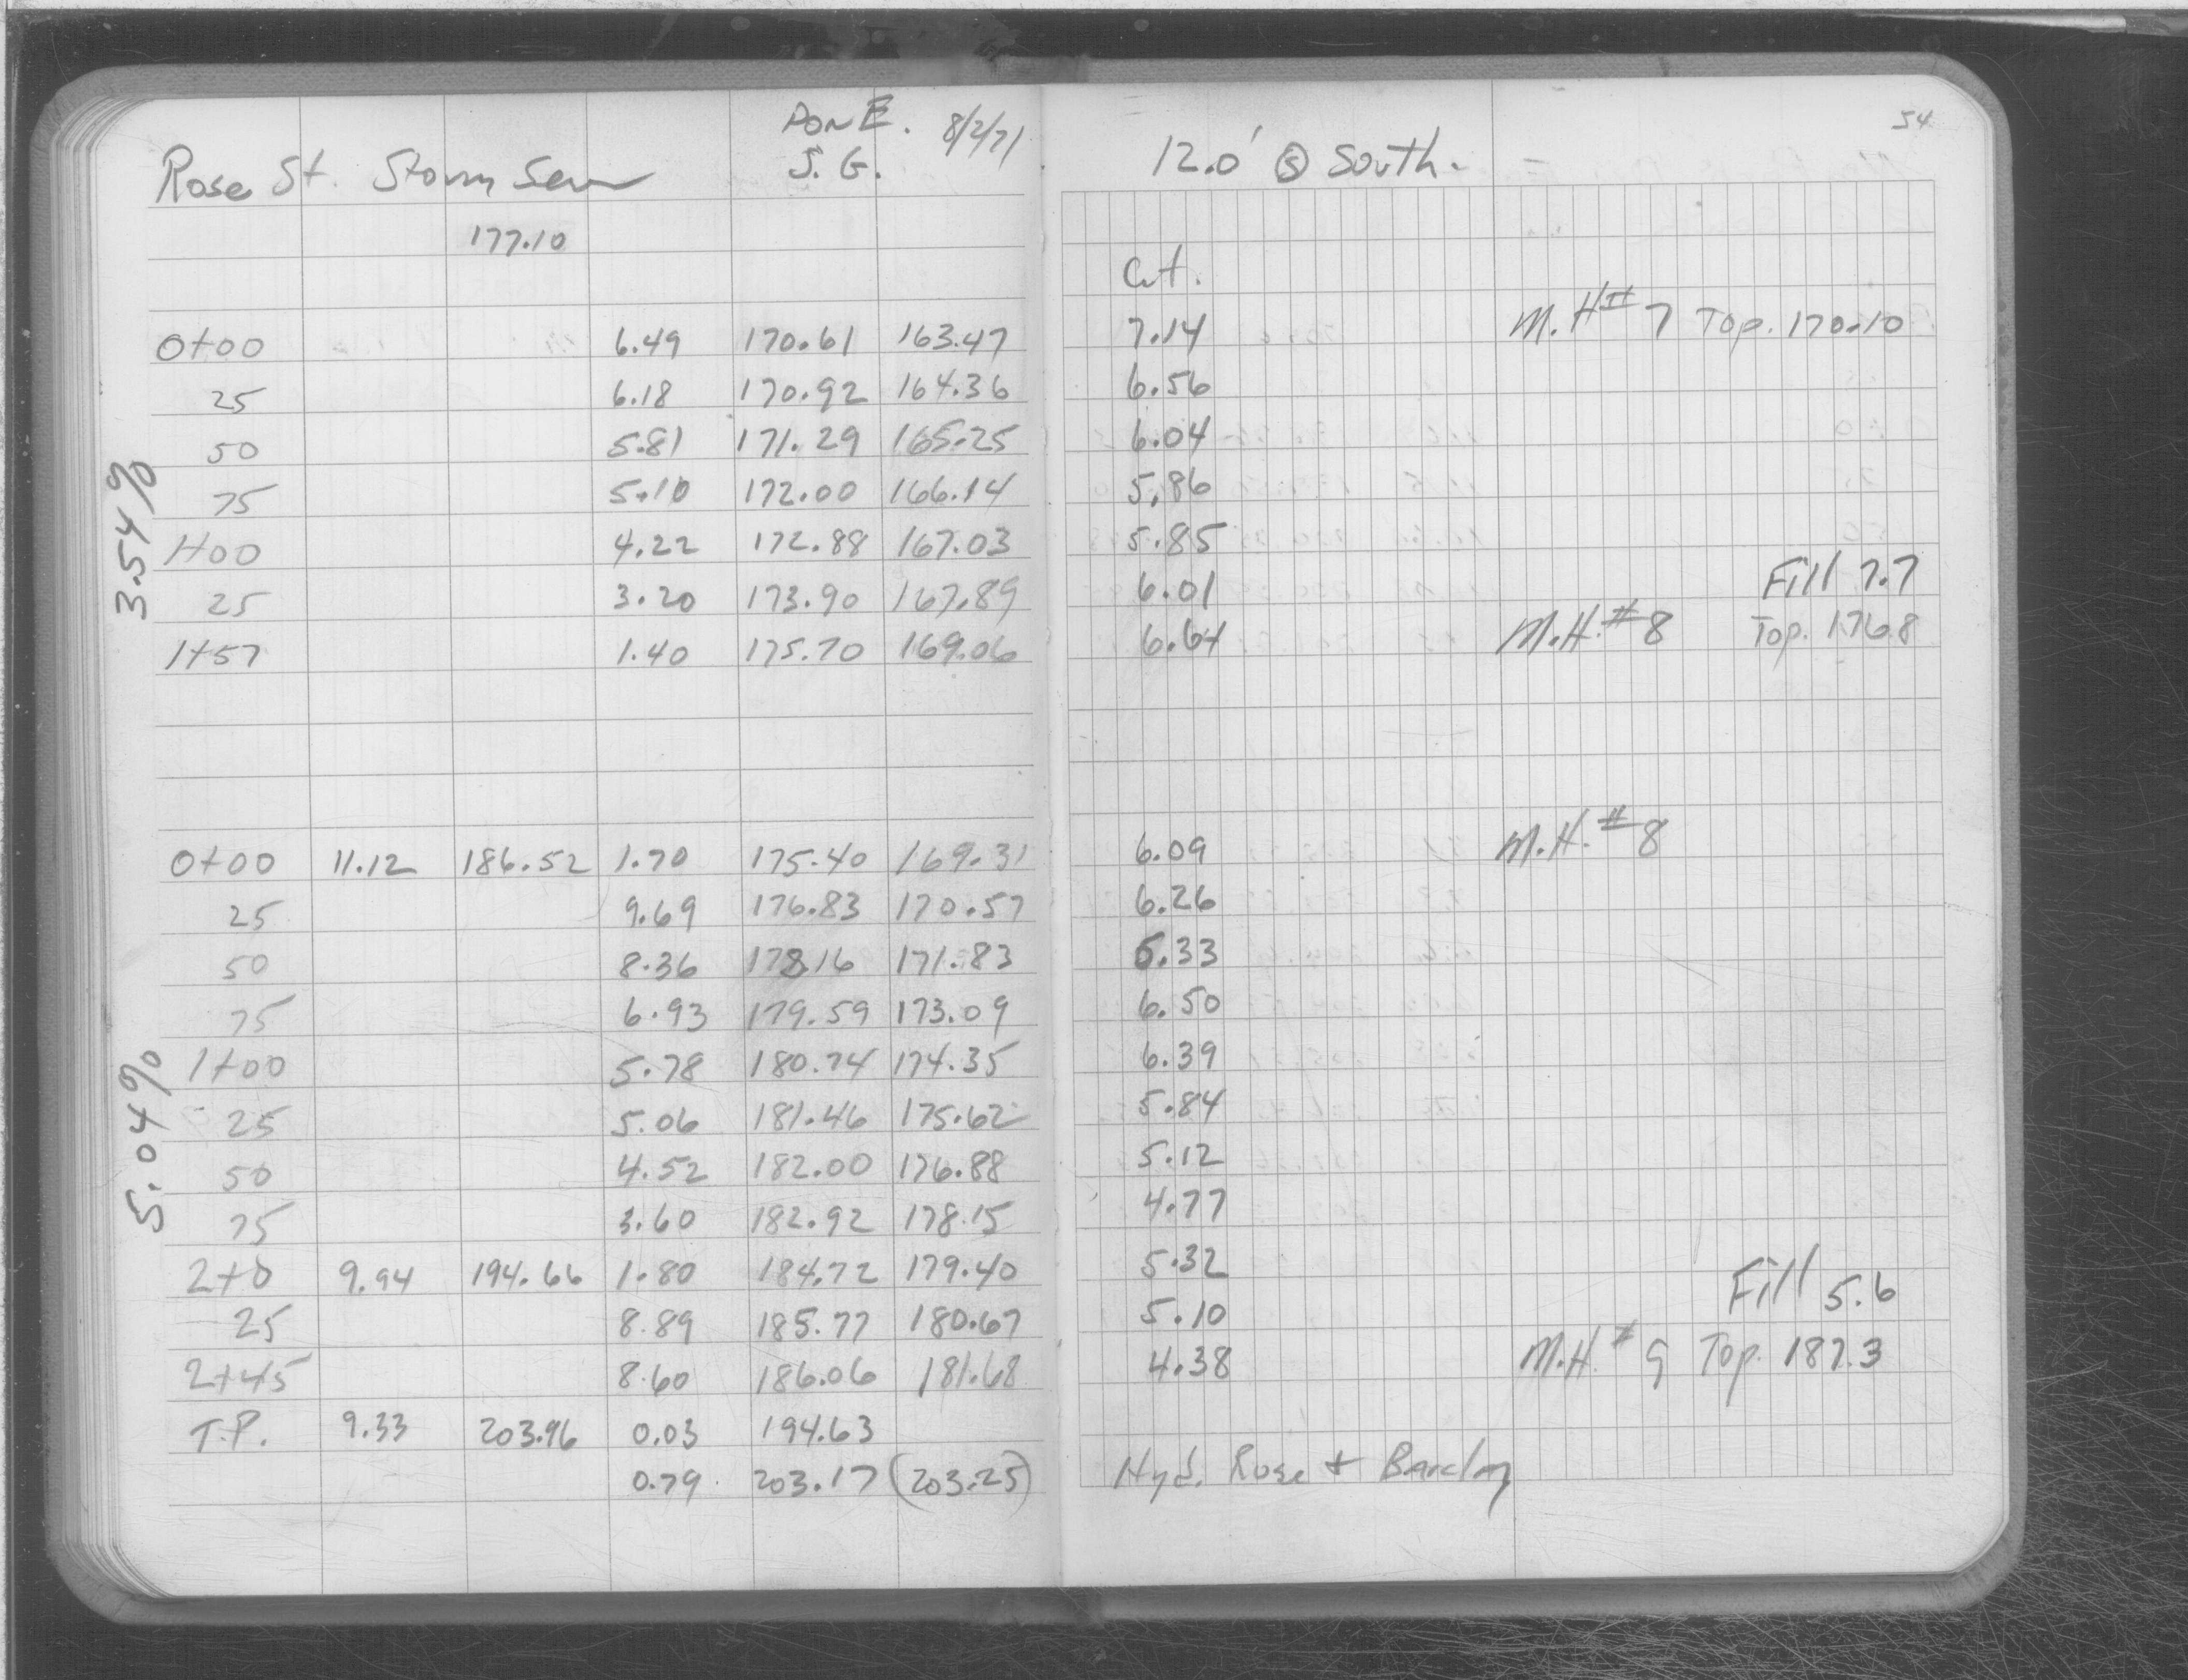 Don E. 8/2/71
Rose St. Storm Sewer J. G.
177.10
0+00 6.49 170.61 163.47
25 6.18 170.92 164.36
50 5.81 171.29 165.25
75 5.10 172.00 166.14
1+00 4.22 172.88 167.03
25 3.20 173.90 167.89
1+57 1.40 175.70 169.06
3.54%
0+00 11.12 186.52 1.70 175.40 169.31
25 9.69 176.83 170.57
50 8.36 178.16 171.83
75 6.93 179.59 173.09
1+00 5.78 180.74 174.35
25 5.06 181.46 175.62
50 4.52 182.00 176.88
75 3.60 182.92 178.15
2+0 9.94 194.66 1.80 184.72 179.40
25 8.89 185.77 180.67
2+45 8.60 186.06 181.68
T.P. 9.33 203.96 0.03 194.63
0.79 203.17 (203.25)
5.04%
54
12.0' Ⓢ South.
Cut.
7.14 M.H# 7 Top. 170.10
6.56
6.04
5.86
5.85
6.01 Fill 7.7
6.64 M.H.#8 Top. 176.8
6.09 M.H.#8
6.26
6.33
6.50
6.39
5.84
5.12
4.77
5.32 Fill 5.6
5.10
4.38 M.H.# 9 Top. 187.3
Hyd. Rose + Barclay